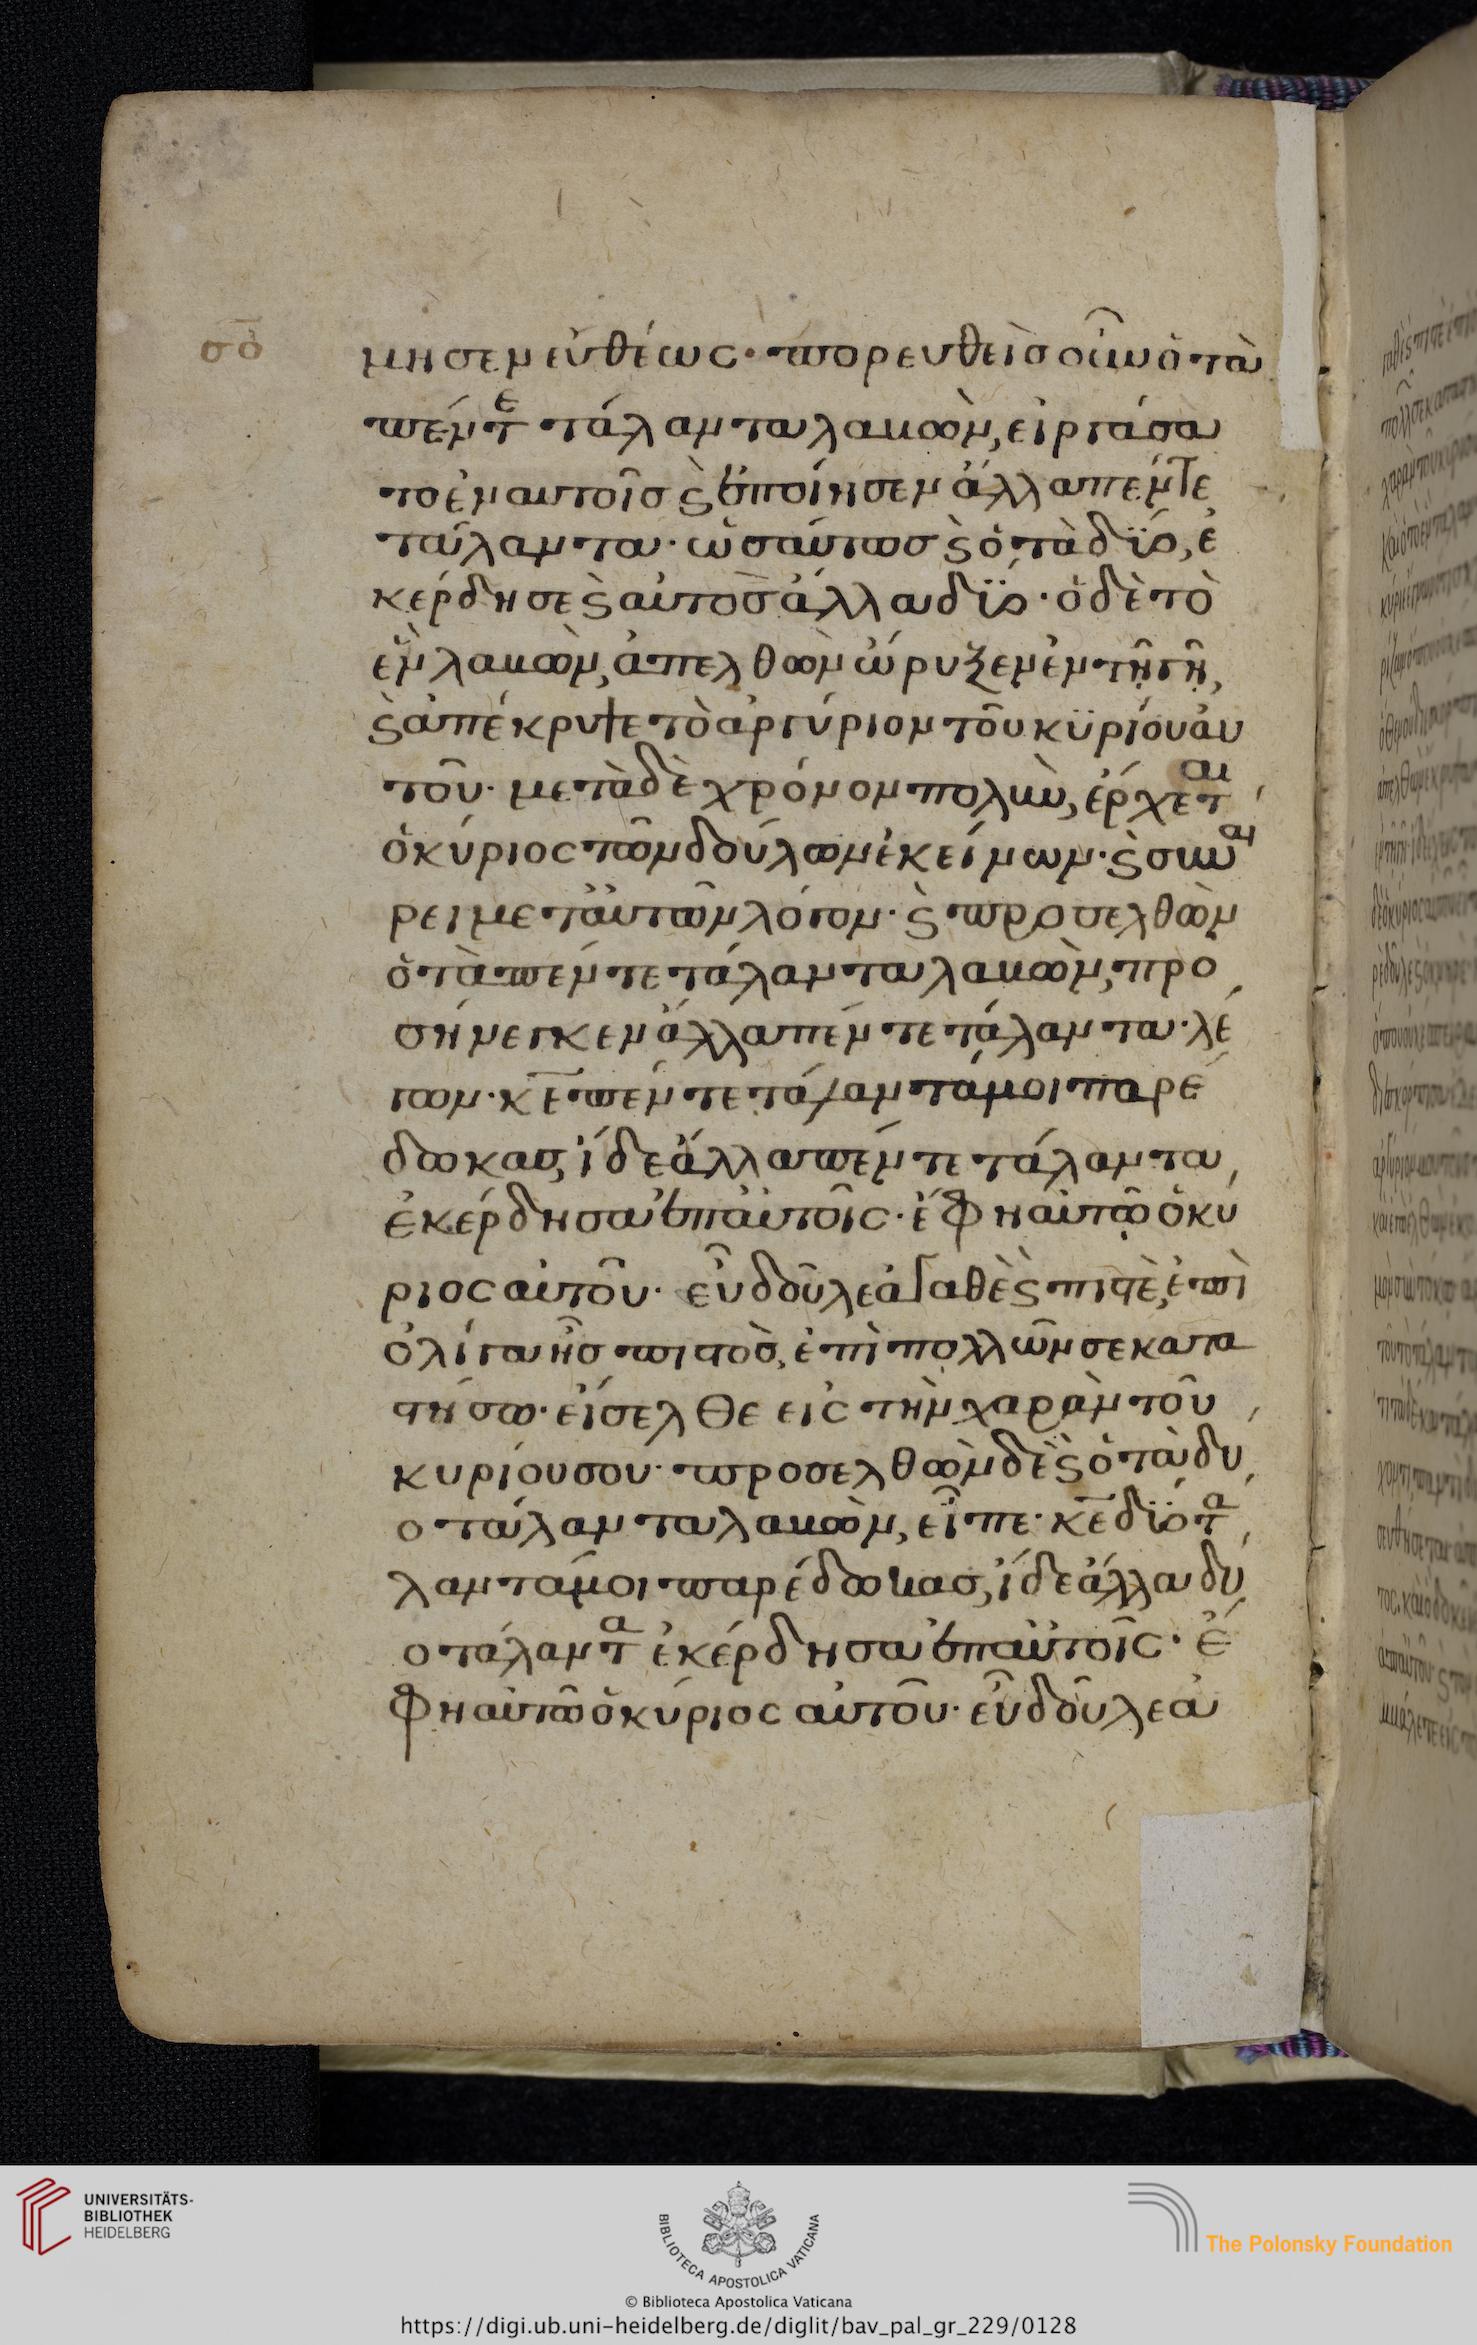 σο
μησεν εὐθέως· πορευθεὶς οὖν ὁ τὰ
πέντε τάλαντα λαβὼν, εἰργάσα
το ἐν αὐτοῖς ϗ ἐποίησεν ἄλλα πέντε
τάλαντα· ὡσαύτως ϗ ὁ τὰ δύο, ἐ
κέρδησε ϗ αὐτὸς ἄλλα δύο· ὁ δὲ τὸ
ἓν λαβὼν, ἀπελθὼν ὤρυξεν ἐν τῇ γῇ,
ϗ ἀπέκρυψε τὸ ἀργύριον τοῦ κϋρίου αὐ
τοῦ· μετὰ δὲ χρόνον πολὺν, ἔρχεται
ὁ κύριος τῶν δούλων ἐκείνων· ϗ συναί
ρει μετ' αὐτῶν λόγον· ϗ προσελθὼν
ὁ τὰ πέντε τάλαντα λαβὼν, προ
σήνεγκεν ἄλλα πέντε τάλαντα· λέ
γων· κε πέντε τάλαντά μοι παρέ
δωκας, ἴδε ἄλλα πέντε τάλαντα
ἐκέρδησα ἐπ' αὐτοῖς· ἔφη αὐτῷ ὁ κύ
ριος αὐτοῦ· εὖ δοῦλε ἀγαθὲ ϗ πιστὲ, ἐπὶ
ὀλίγα ἦς πιστὸς, ἐπὶ πολλῶν σε κατα
στήσω· εἴσελθε εἰς τὴν χαρὰν τοῦ
κυρίου σου· προσελθὼν δὲ ϗ ὁ τὰ δύ
ο τάλαντα λαβὼν, εἶπε· κε δύο τά
λαντά μοι παρέδωκας, ἴδε ἄλλα δύ
ο τάλαντα ἐκέρδησα ἐπ' αὐτοῖς· ἔ
φη αὐτῷ ὁ κύριος αὐτοῦ· εὖ δοῦλε ἀ
UNIVERSITÄTS-
BIBLIOTHEK
HEIDELBERG
BIBLIOTECA APOSTOLICA VATICANA
The Polonsky Foundation
© Biblioteca Apostolica Vaticana
https://digi.ub.uni-heidelberg.de/diglit/bav_pal_gr_229/0128